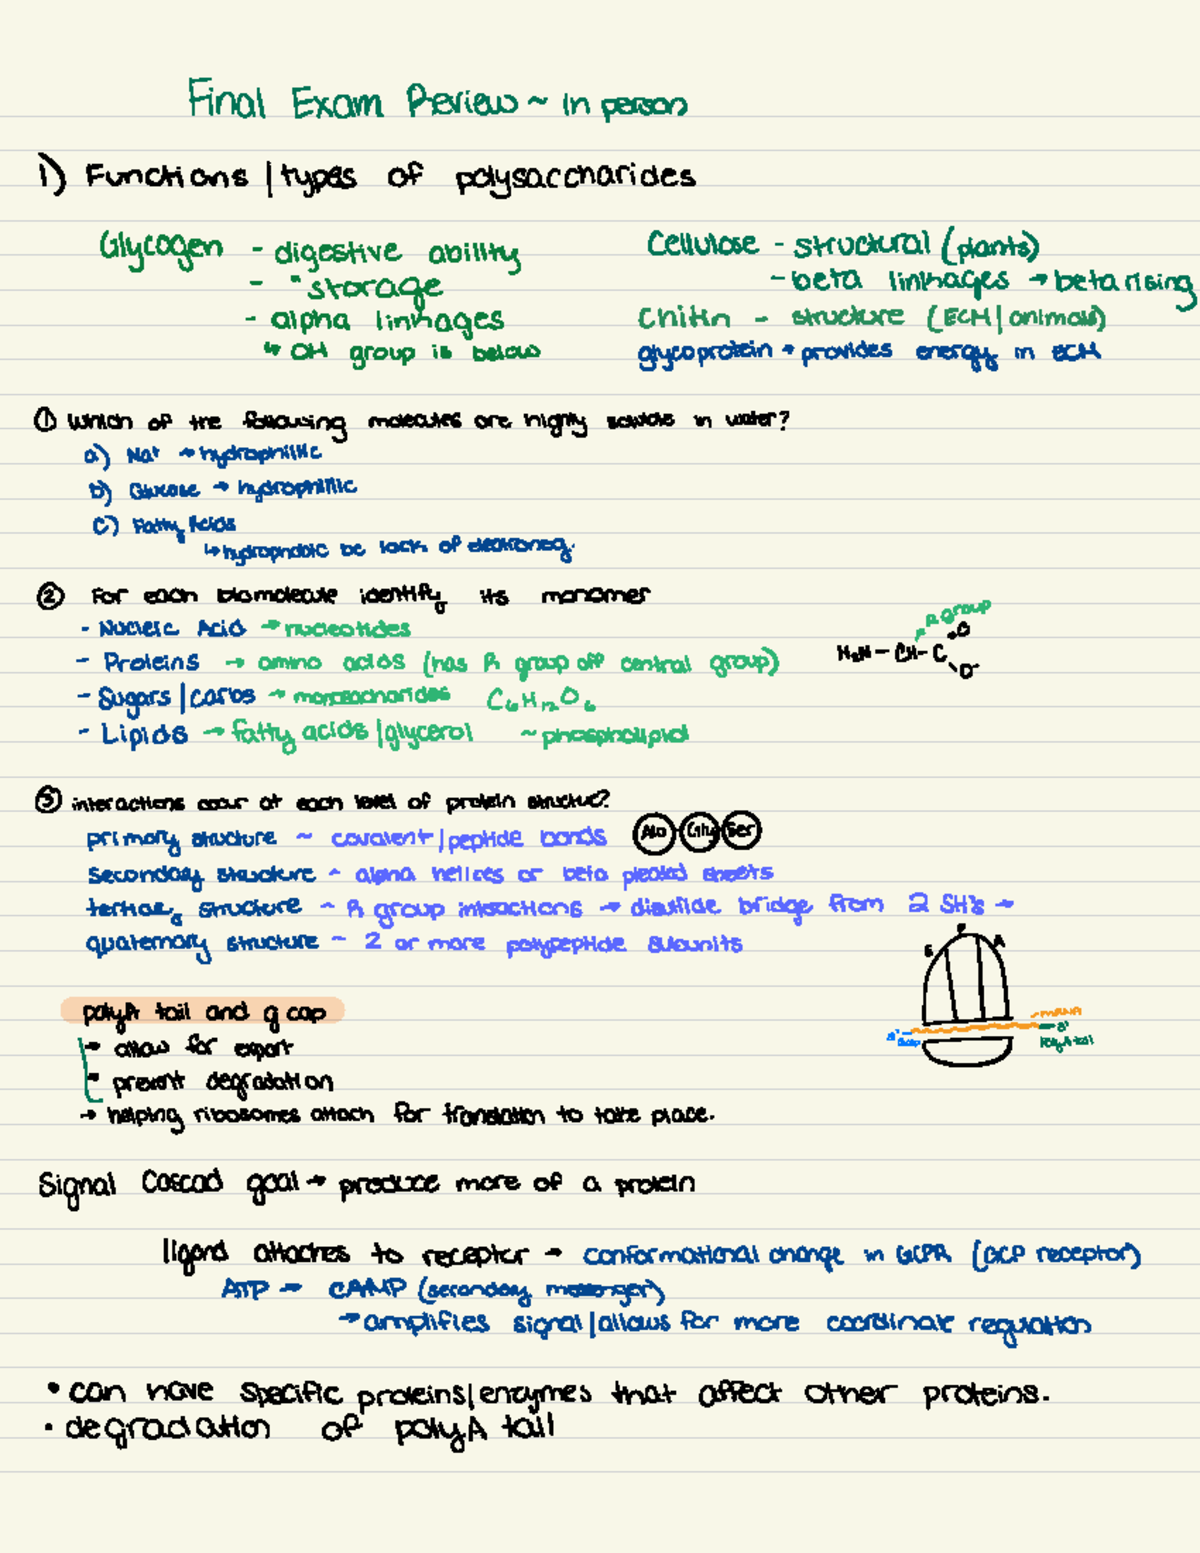 Final Exam Review ~ in person
1) Functions | types of polysaccharides
Glycogen - digestive ability
- "storage
- alpha linkages
↳ OH group is below
Cellulose - structural (plants)
- beta linkages → beta rising
Chitin - structure (ECM | animals)
glycoprotein → provides energy in ECM
① Which of the following molecules are highly soluble in water?
a) Na+ → hydrophillic
b) Glucose → hydrophillic
c) Fatty Acids
↳ hydrophobic bc lack of electroneg.
② For each biomolecule identify its monomer
- Nucleic Acid → nucleotides
- Proteins → amino acids (has R group off central group)
- Sugars | carbs → monosaccharides C6H12O6
- Lipids → fatty acids | glycerol ~ phospholipid
R group
H3N - CH - C
O
O-
③ interactions occur at each level of protein structue?
primary structure ~ covalent | peptide bonds Ala Gly Ser
secondary structure ~ alpha helices or beta pleated sheets
tertiary structure ~ R group interactions → disulfide bridge from 2 SH's →
quaternary structure ~ 2 or more polypeptide subunits
E P A
mRNA
3'
Poly A tail
5'
polyA tail and g cap
→ allow for export
→ prevent degradation
→ helping ribosomes attach for translation to take place.
Signal Cascad goal → produce more of a protein
ligand attaches to receptor → conformational change in GCPR (GCP receptor)
ATP → CAMP (secondary messenger)
→ amplifies signal | allows for more coordinate regulation
• can have specific proteins | enzymes that affect other proteins.
• degradation of polyA tail